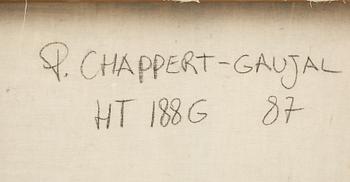 P. CHAPPERT-GAUJAL
HT 188G 87